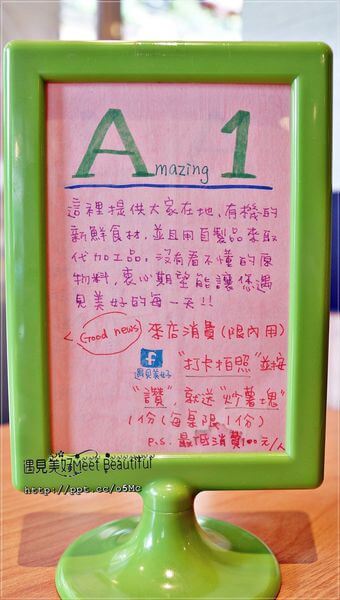 Amazing 1
這裡提供大家在地、有機的
新鮮食材,並且用自製品來取
代加工品。沒有看不懂的原
物料,衷心期望能讓您遇
見美好的每一天!!
< Good news 來店消費(限內用)
f "打卡拍照"並按
遇見美好
"讚",就送"炒薯塊"
1份(每桌限1份)
P.S. 最低消費100元/人
遇見美好Meet Beautiful
http://ppt.cc/o5Mc